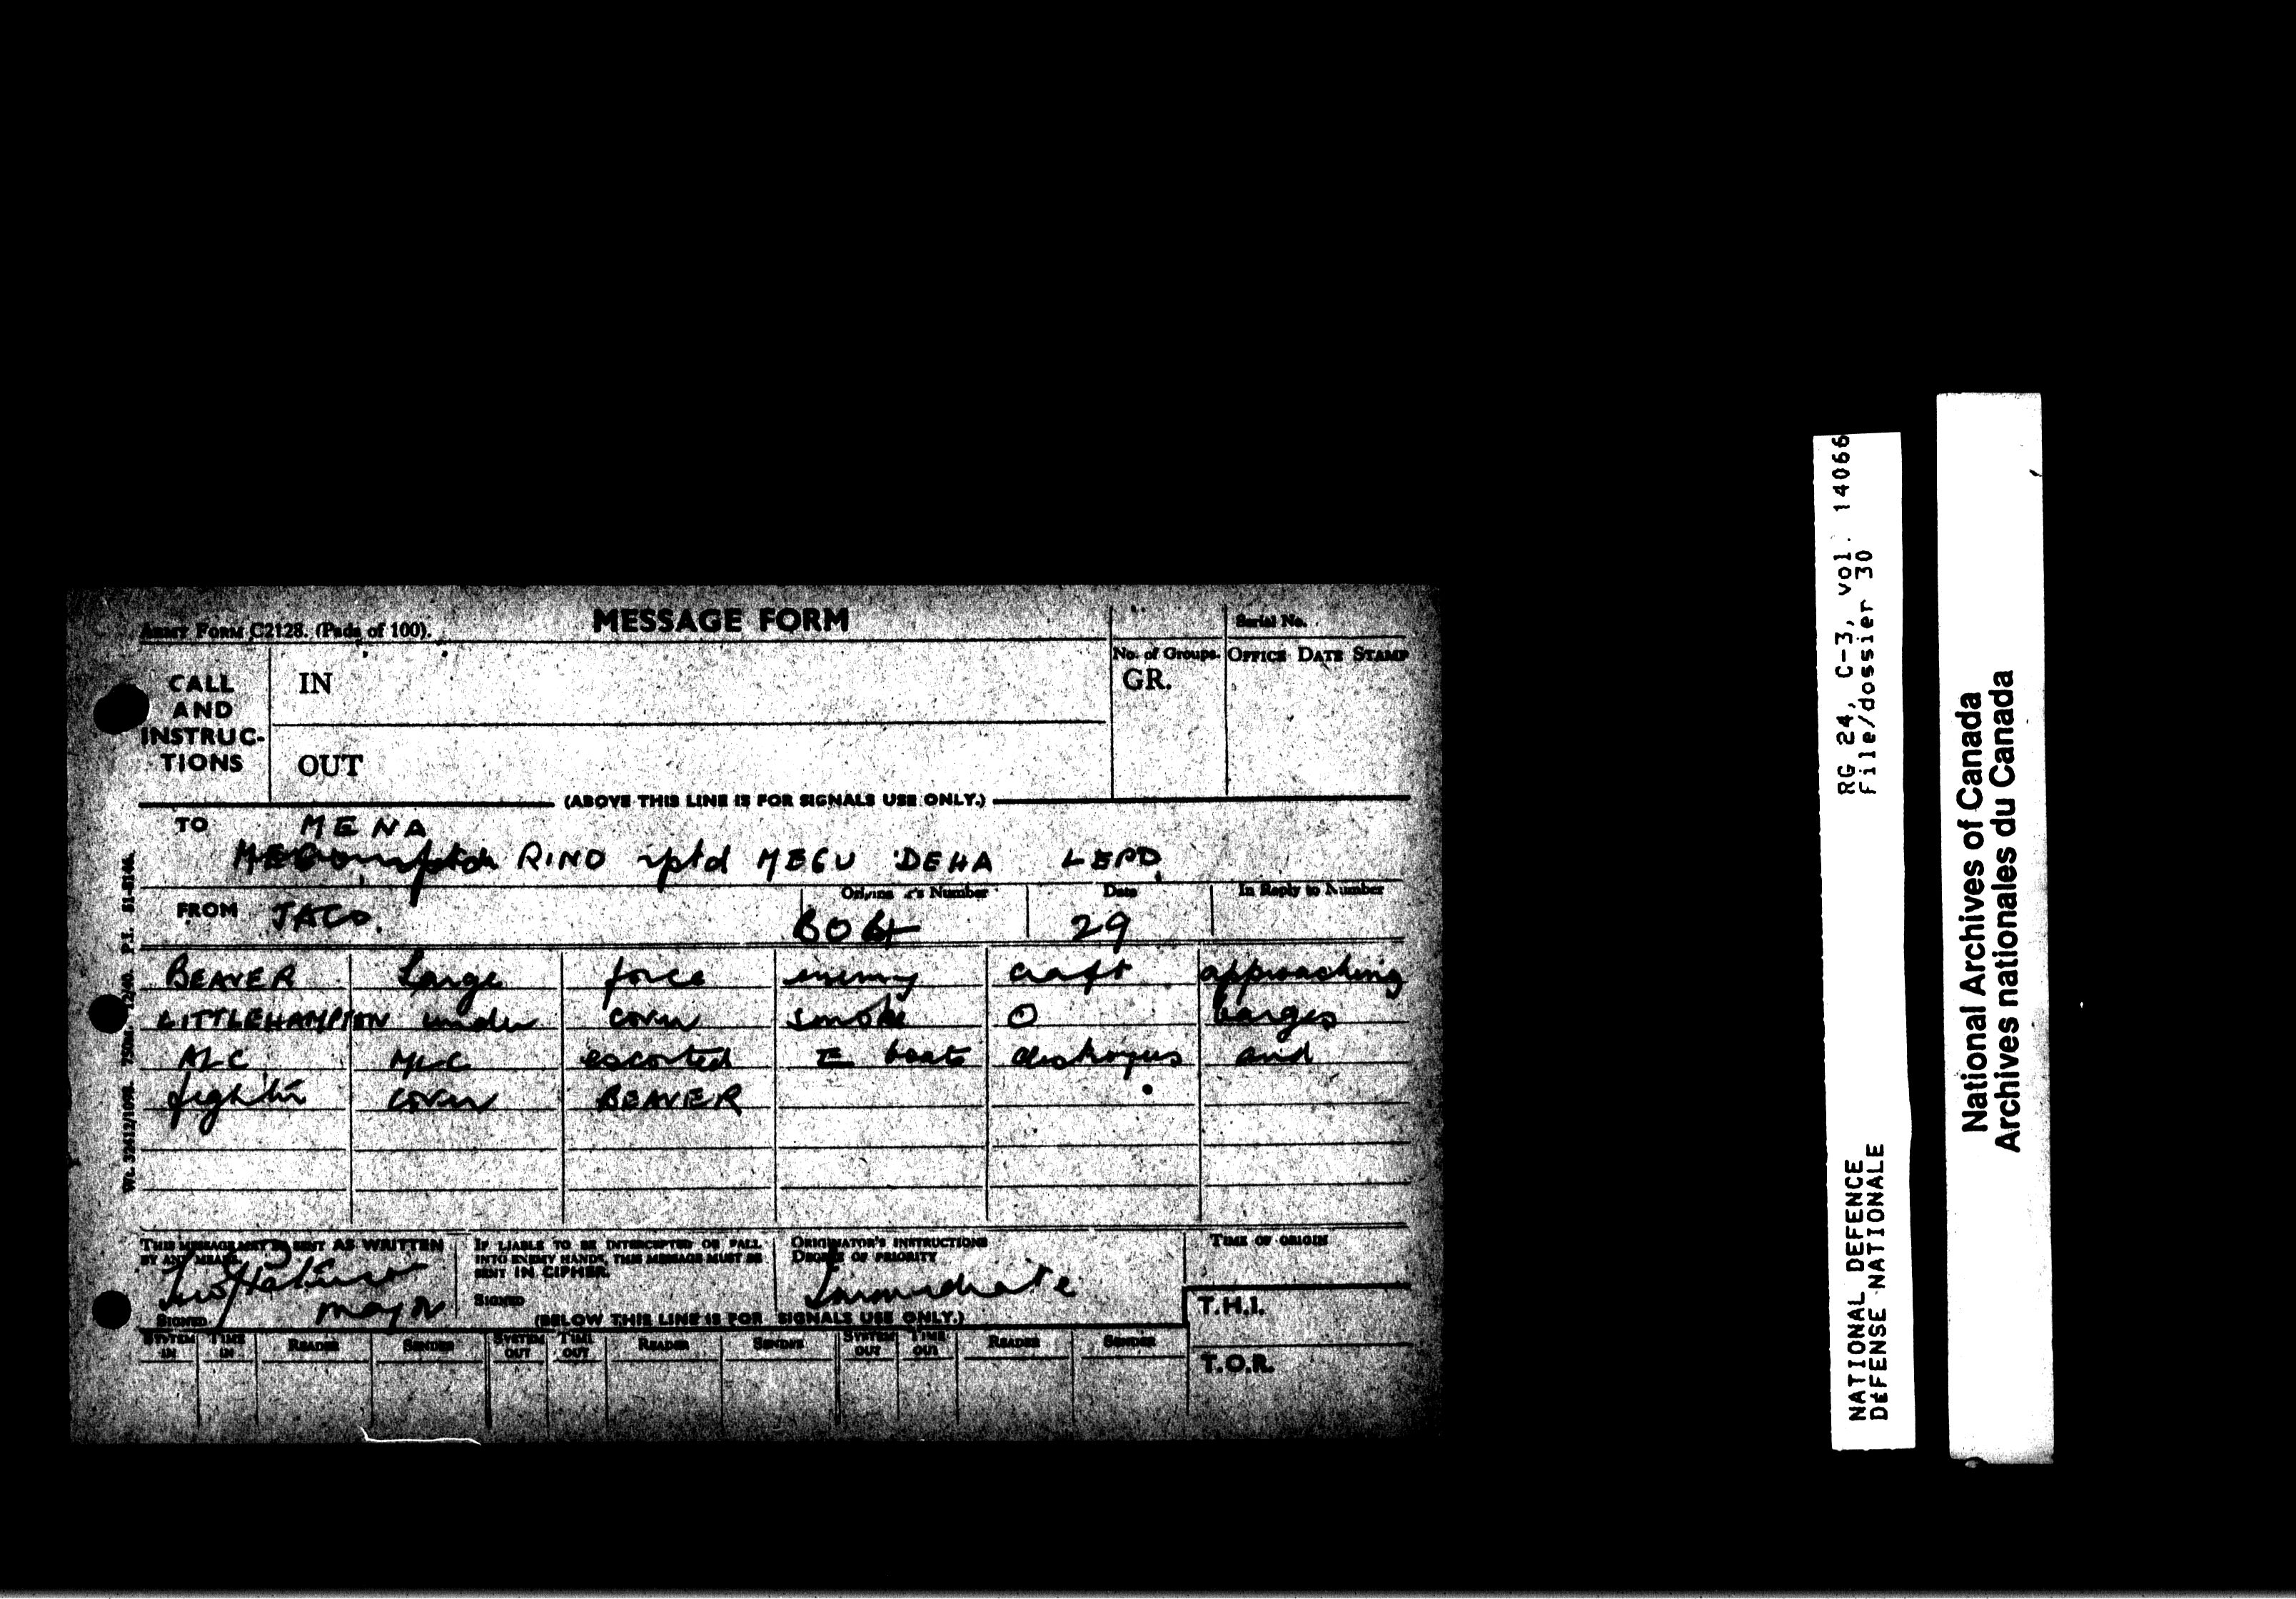 MESSAGE FORM
ARMY FORM C2128. (Pads of 100).
Serial No.
CALL AND INSTRUC-TIONS
IN
OUT
No. of Groups.
GR.
OFFICE DATE STAMP
(ABOVE THIS LINE IS FOR SIGNALS USE ONLY.)
TO MENA
RINO rptd MEGU DEHA LEPD
FROM JACO.
Originator's Number
BO64
Date
29
In Reply to Number
BEAVER Large force enemy craft approaching
LITTLEHAMPTON under cover smoke O barges
ALC MLC escorted E boats destroyers and
fighter cover BEAVER
THIS MESSAGE MAY BE SENT AS WRITTEN
BY ANY MEANS.
Major
SIGNED
IF LIABLE TO BE INTERCEPTED OR FALL
INTO ENEMY HANDS, THIS MESSAGE MUST BE
SENT IN CIPHER.
SIGNED
ORIGINATOR'S INSTRUCTIONS
DEGREE OF PRIORITY
Immediate
TIME OF ORIGIN
T.H.I.
T.O.R.
(BELOW THIS LINE IS FOR SIGNALS USE ONLY.)
SYSTEM IN TIME IN READER SENDER SYSTEM OUT TIME OUT READER SENDER SYSTEM OUT TIME OUT READER SENDER
RG 24, C-3, vol. 14066
File/dossier 30
NATIONAL DEFENCE
DÉFENSE NATIONALE
National Archives of Canada
Archives nationales du Canada